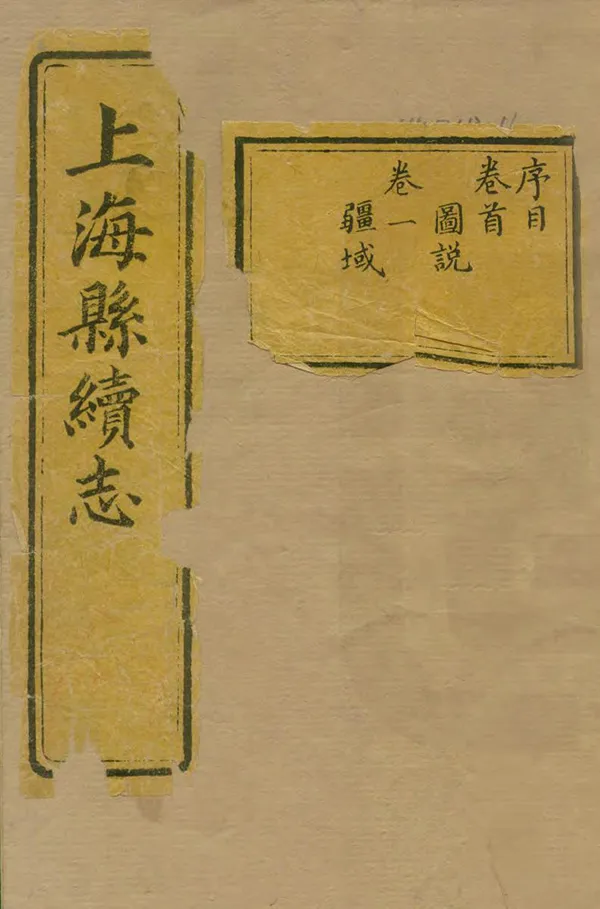 上海縣續志
序目
卷首
圖説
卷一
疆域